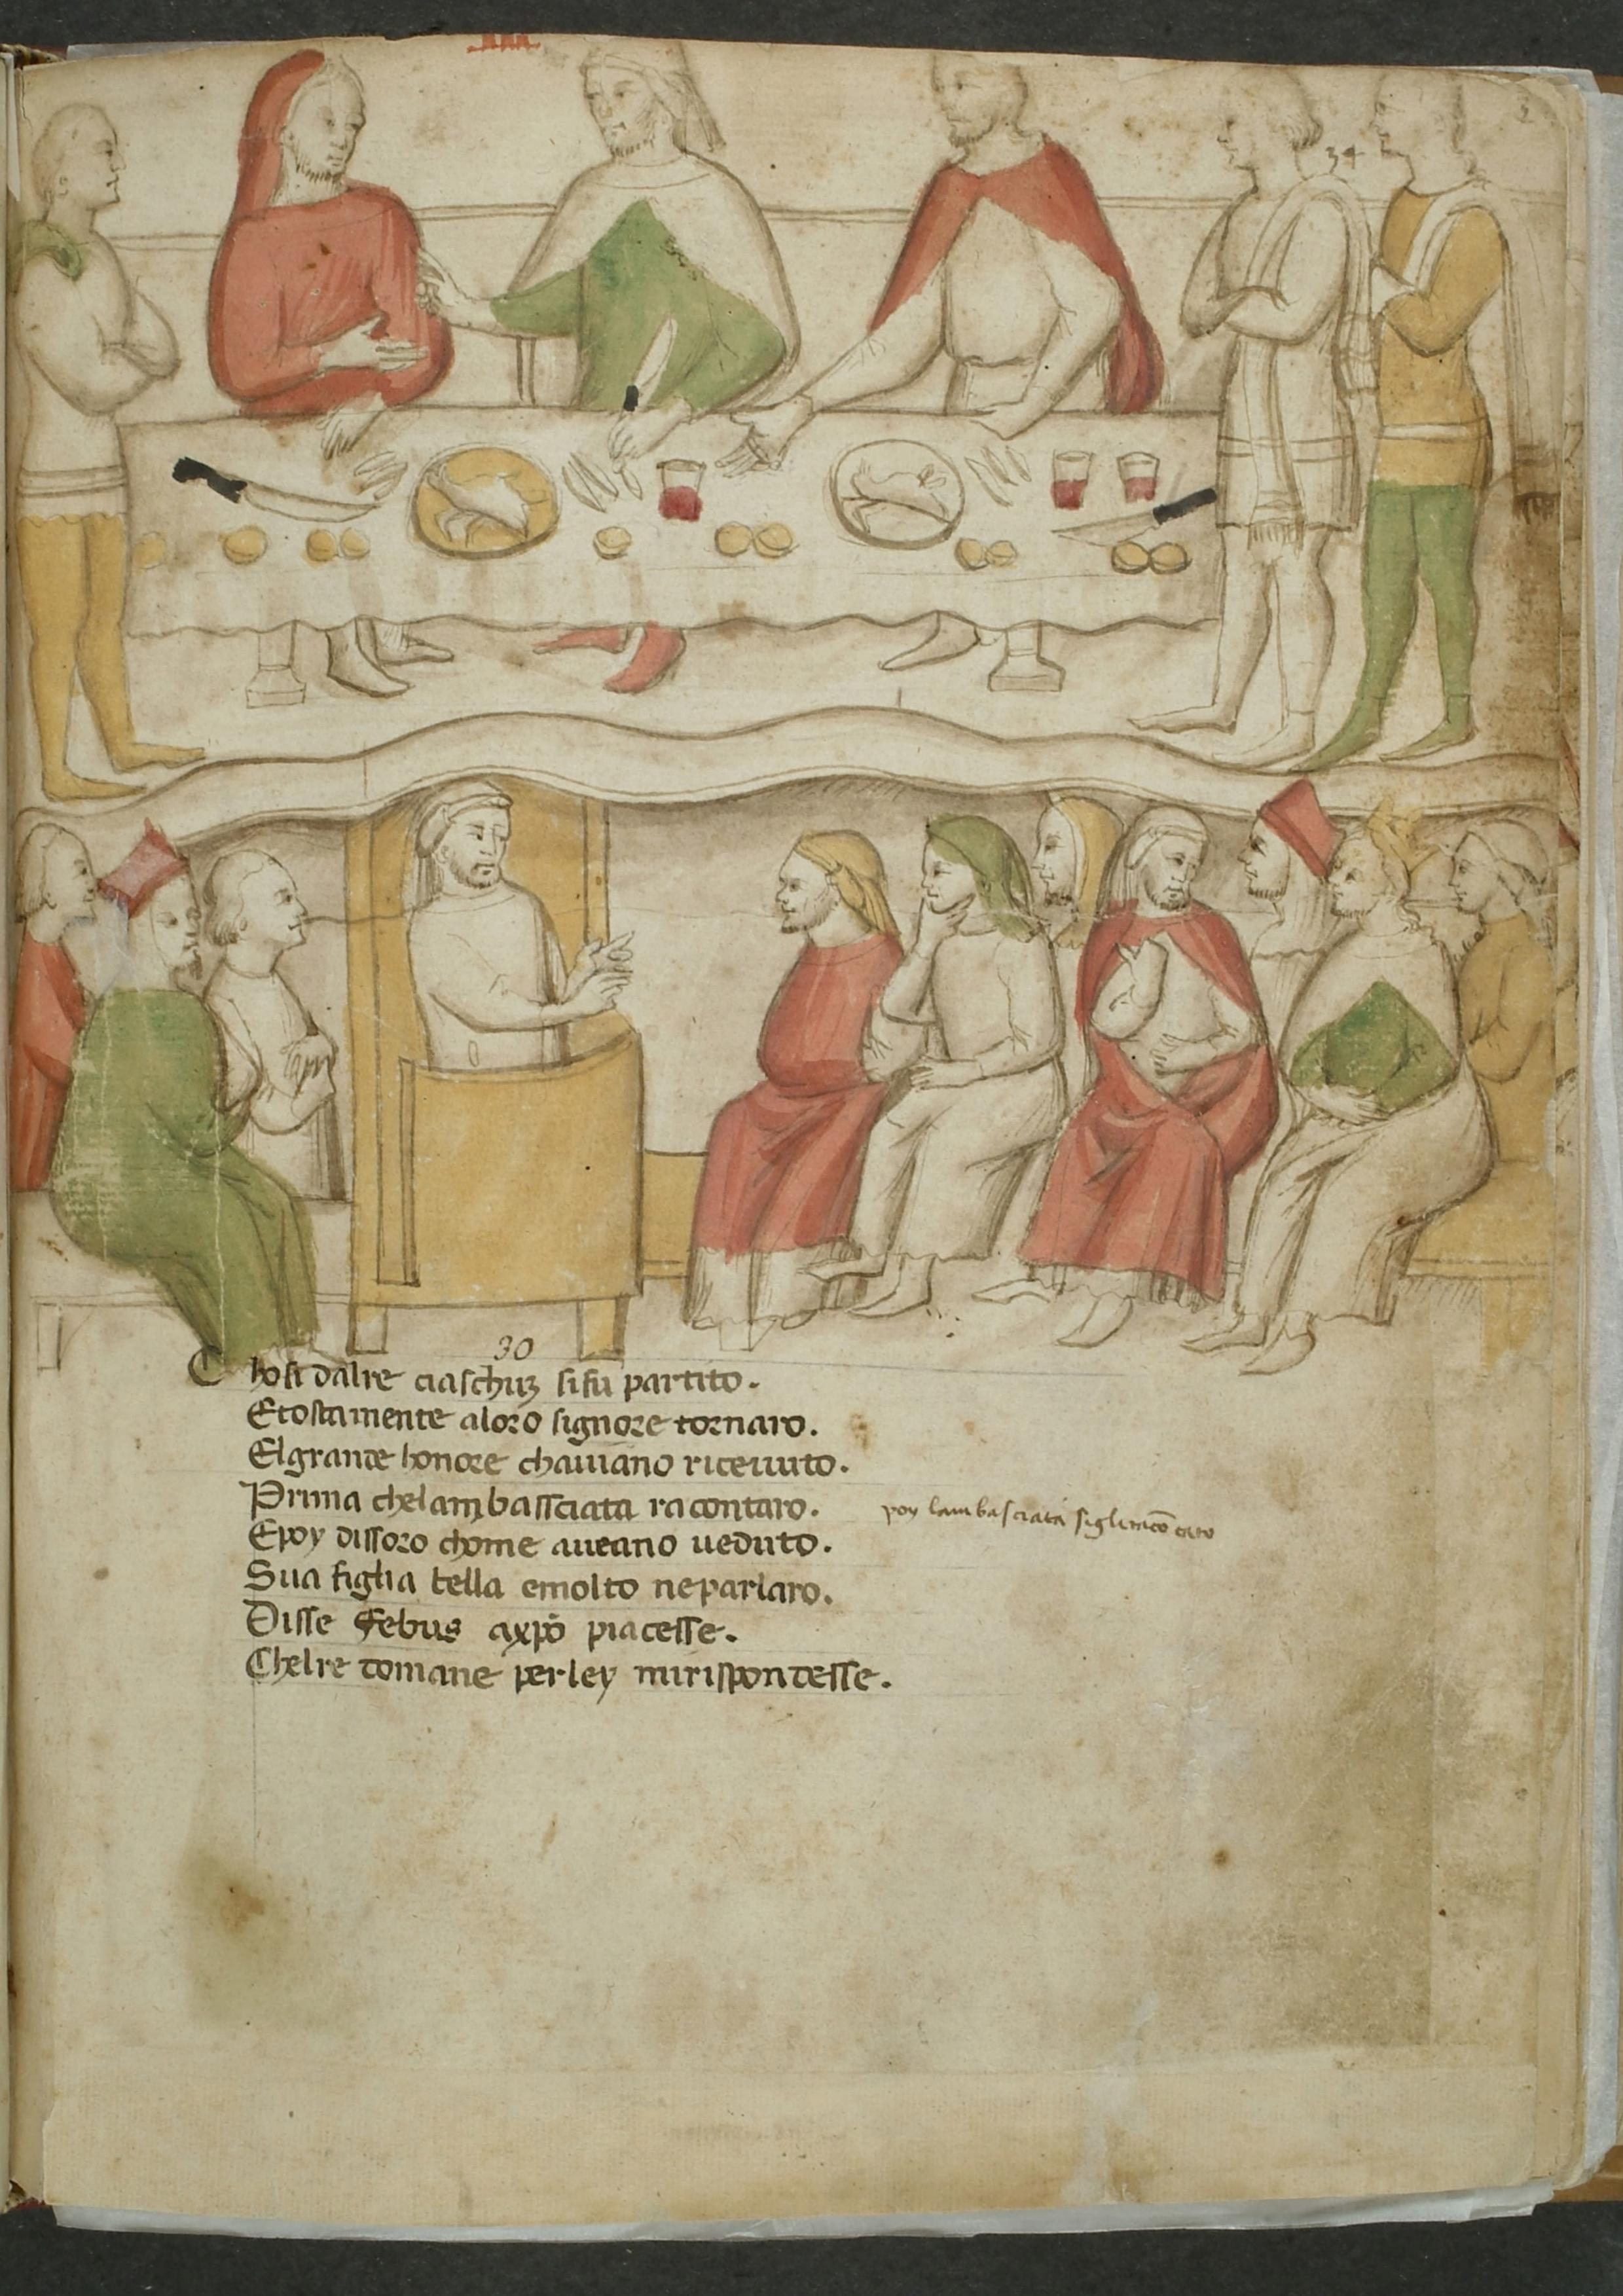 34
30
Chosi dalre ciaschuʒ sifu partito.
Etostamente aloro signore tornaro.
Elgrande honore chauiano riceuuto.
Prima chelambassciata racontaro. poy lambasciata sigliracōtaro
Epoy dissoro chome aueano ueduto.
Sua figlia bella emolto neparlaro.
Disse Febus axpō piacesse.
Chelre domane perley mirispondesse.